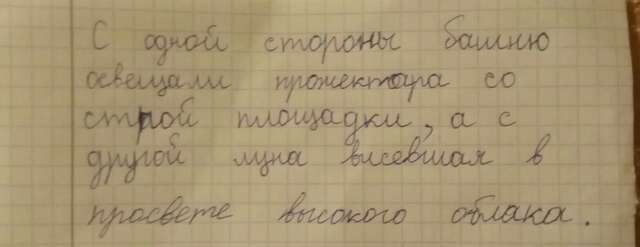 С одной стороны башню
освещали прожектара со
строй площадки, а с
другой луна висевшая в
просвете высокого облака.